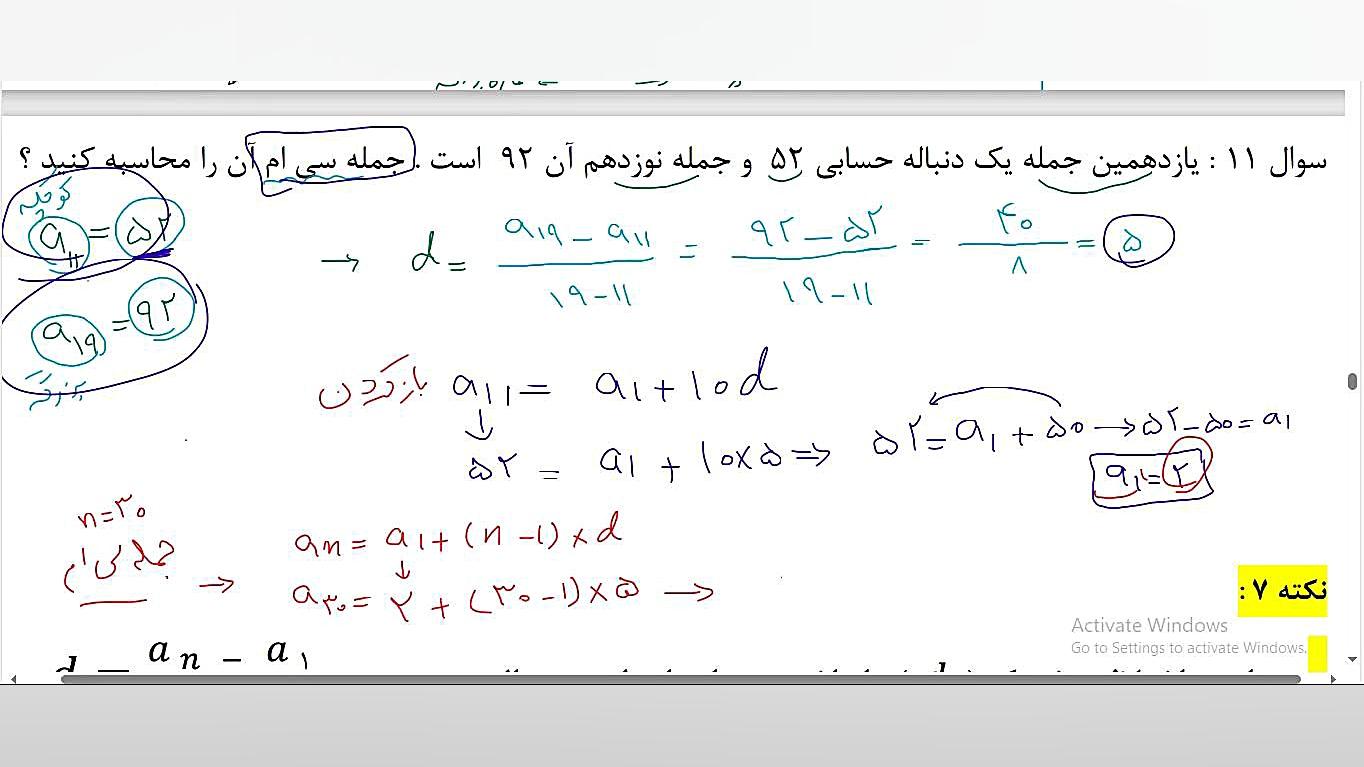 سوال ۱۱ : یازدهمین جمله یک دنباله حسابی ۵۲ و جمله نوزدهم آن ۹۲ است . جمله سی ام آن را محاسبه کنید ؟
کوچکه
a₁₁ = ۵۲
→ d = (a₁₉ − a₁₁) / (۱۹ − ۱۱) = (۹۲ − ۵۲) / (۱۹ − ۱۱) = ۴۰ / ۸ = ۵
a₁₉ = ۹۲
بزرگه
باز کردن a₁₁ = a₁ + ۱۰d
۵۲ = a₁ + ۱۰×۵ ⇒ ۵۲ = a₁ + ۵۰ → ۵۲ − ۵۰ = a₁
a₁ = ۲
n = ۳۰
جمله سی ام →
aₙ = a₁ + (n − ۱) × d
a₃₀ = ۲ + (۳۰ − ۱) × ۵ →
نکته ۷ :
Activate Windows
Go to Settings to activate Windows.
d = aₙ − a₁